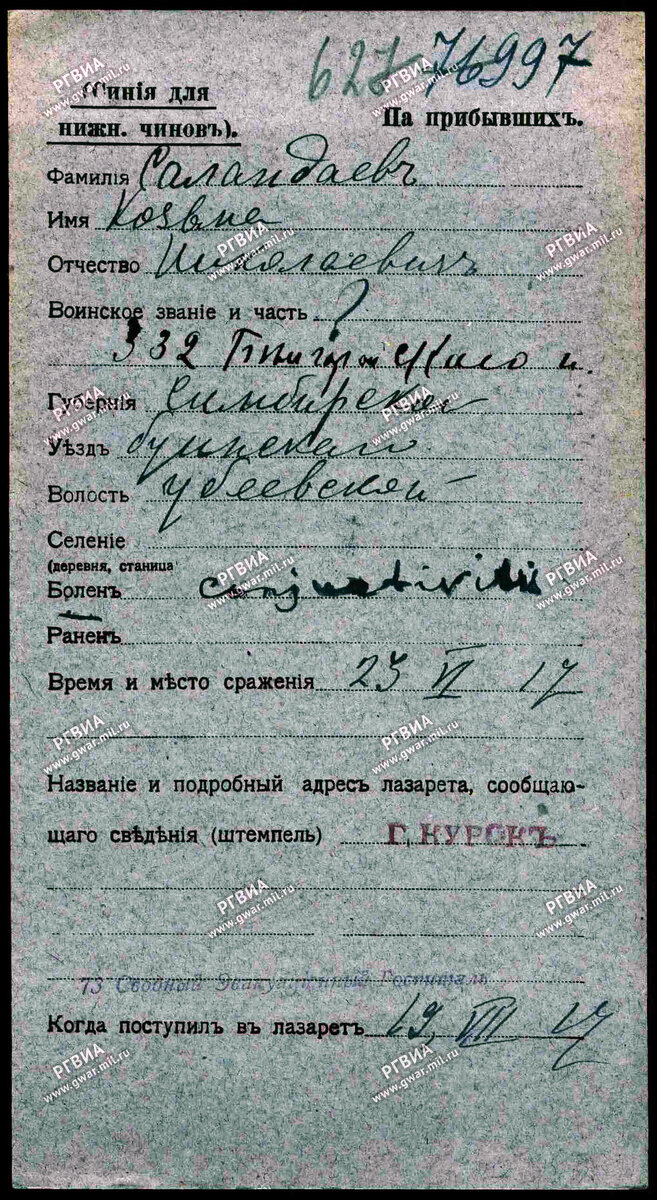 627 76997
(Синія для
нижн. чиновъ).
На прибывшихъ.
Фамилія Саландаевъ
Имя
Отчество Николаевичъ
Воинское званіе и часть ?
332
Губернія Симбирской
Уѣздъ буинскаго
Волость Убеевской
Селеніе
(деревня, станица
Боленъ conjunctivitis
Раненъ
Время и мѣсто сраженія 23 VI 17
Названіе и подробный адресъ лазарета, сообщаю-
щаго свѣдѣнія (штемпель) Г. КУРСКЪ
73 Сводный Эвакуаціонный Госпиталь
Когда поступилъ въ лазаретъ 19 VIII 17
РГВИА
www.gwar.mil.ru